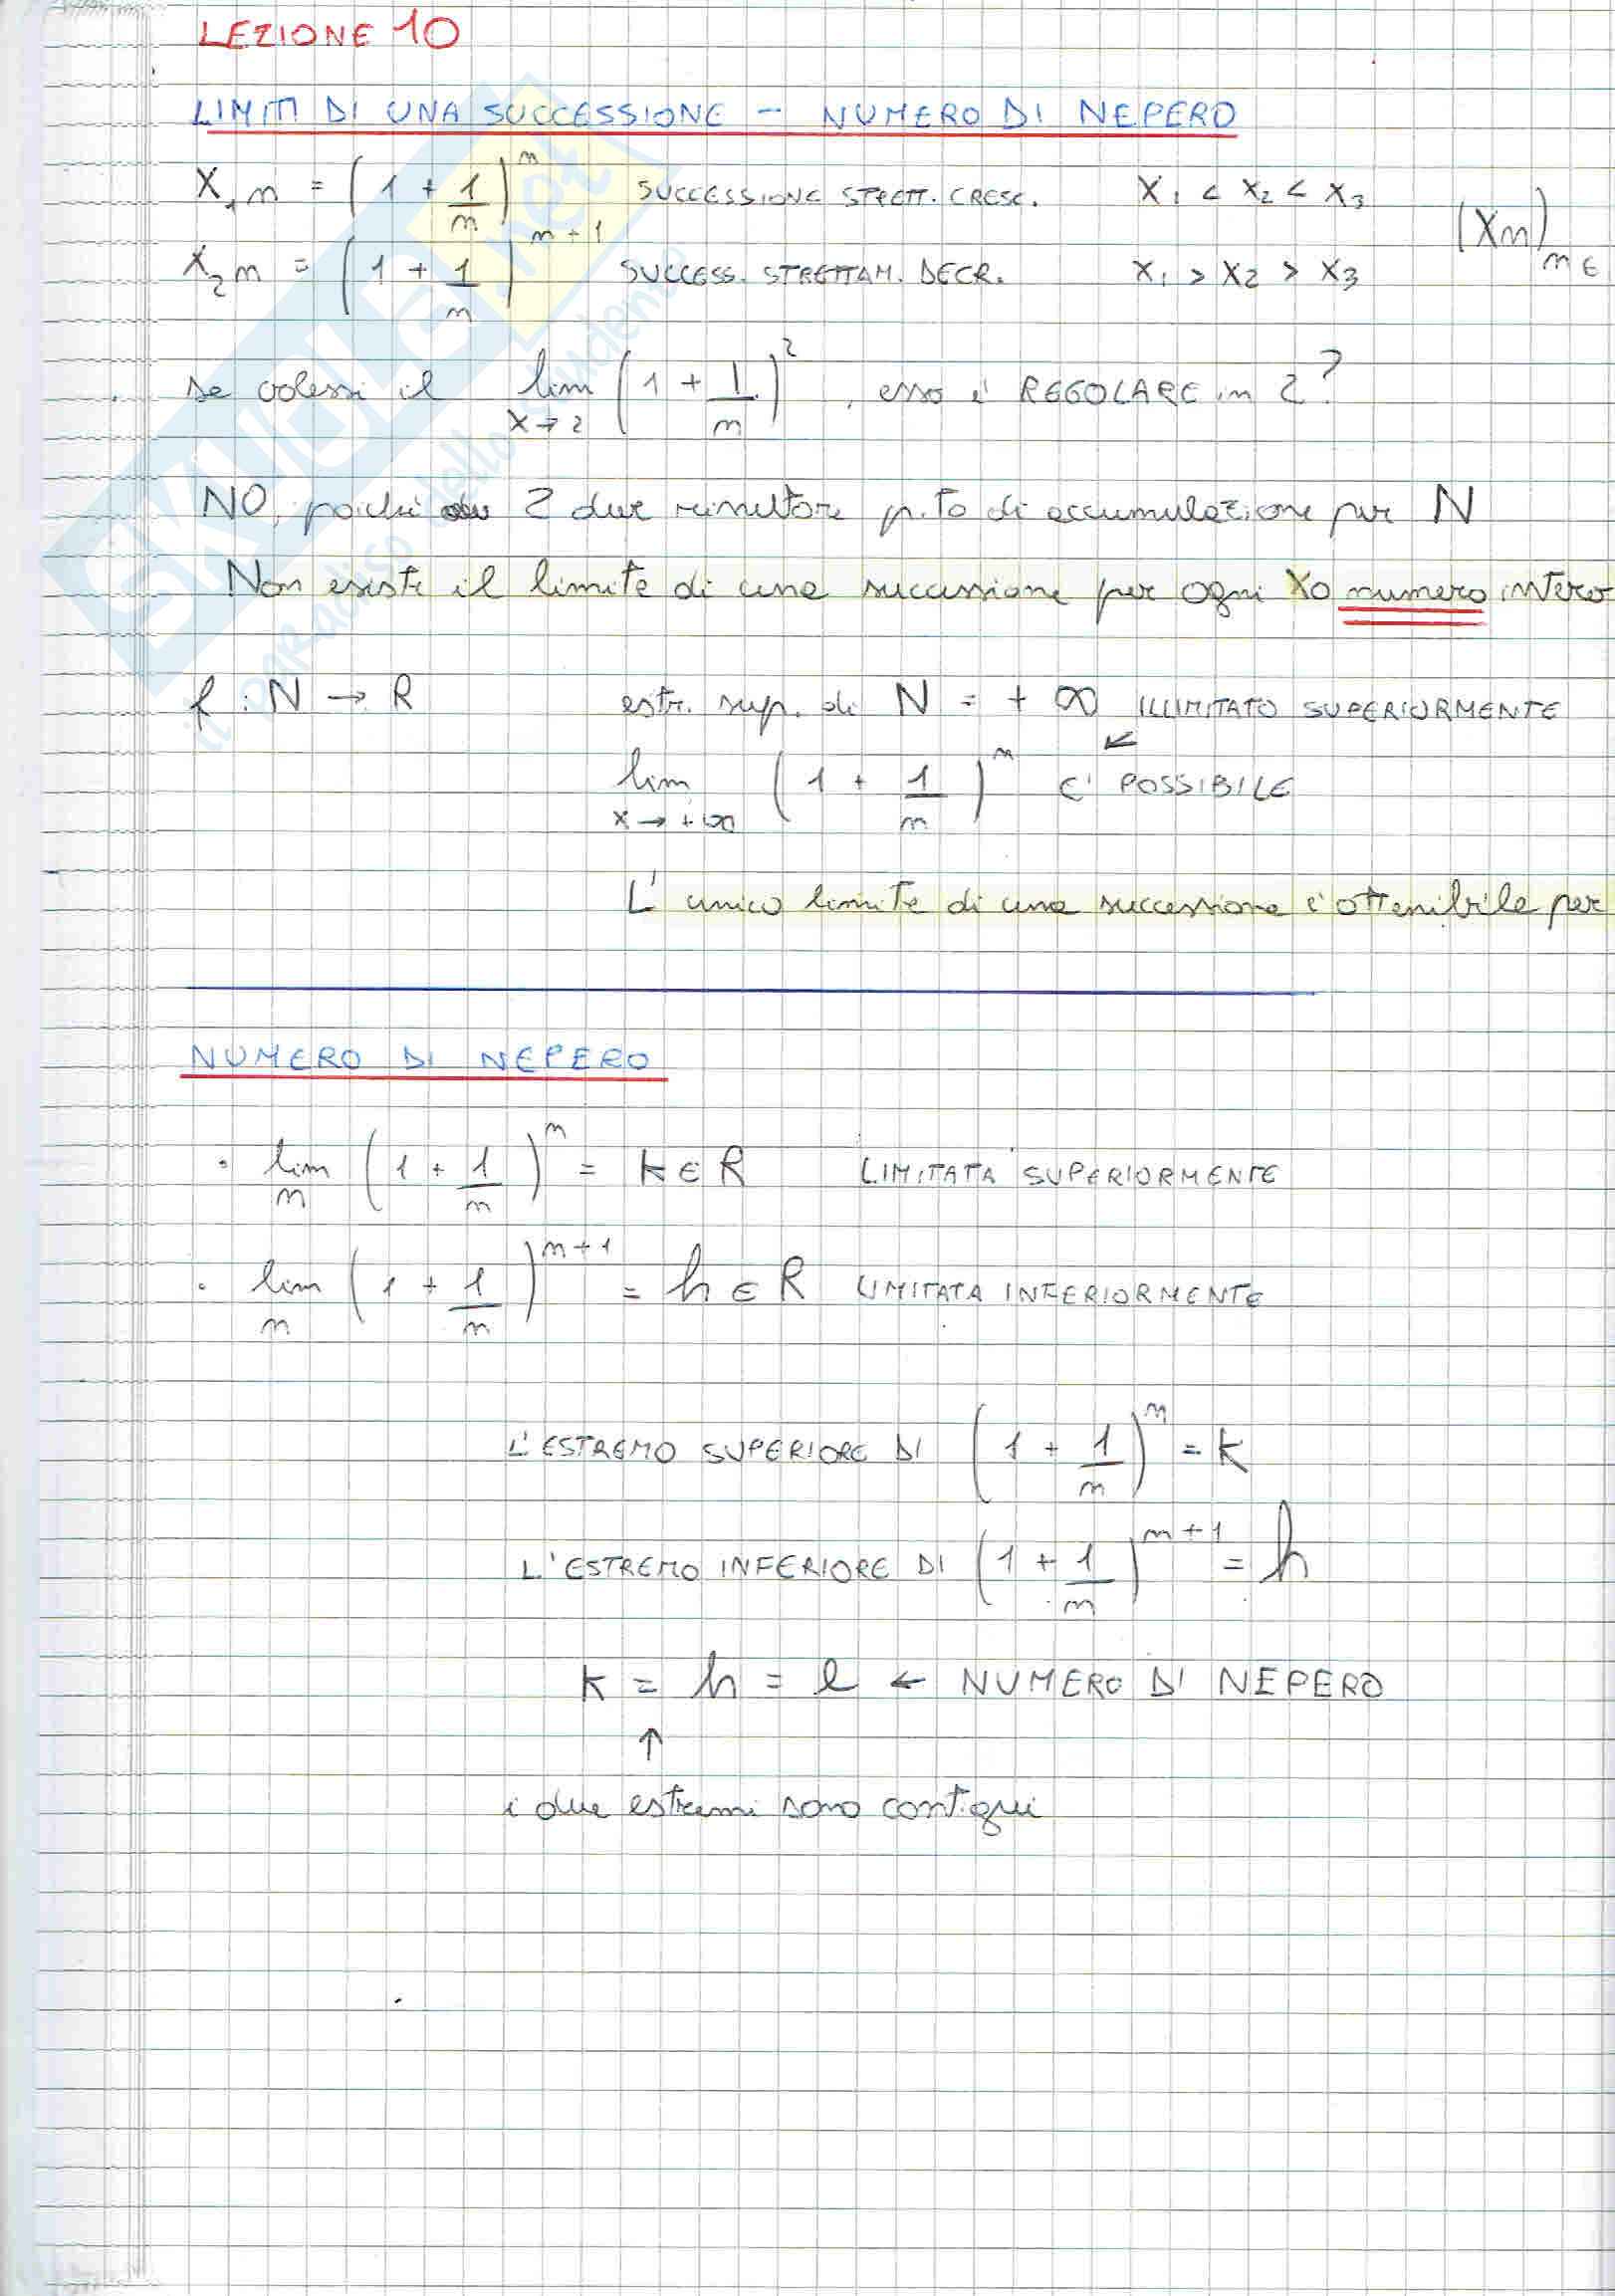 LEZIONE 10
LIMITI DI UNA SUCCESSIONE - NUMERO DI NEPERO
X₁n = (1 + 1/n)^n SUCCESSIONE STRETT. CRESC. X₁ < X₂ < X₃ (Xn) n∈
X₂n = (1 + 1/n)^(n+1) SUCCESS. STRETTAM. DECR. X₁ > X₂ > X₃
se volessi il lim x→2 (1 + 1/n)^2, esso è REGOLARE in 2?
NO, poiché 2 deve risultare p.to di accumulazione per N
Non esiste il limite di una successione per ogni X0 numero intero
f : N → R estr. sup. di N = + ∞ ILLIMITATO SUPERIORMENTE
lim x→+∞ (1 + 1/n)^n ↙ E' POSSIBILE
L'unico limite di una successione è ottenibile per
NUMERO DI NEPERO
• lim n (1 + 1/n)^n = K ∈ R LIMITATA SUPERIORMENTE
• lim n (1 + 1/n)^(n+1) = h ∈ R LIMITATA INFERIORMENTE
L'ESTREMO SUPERIORE DI (1 + 1/n)^n = K
L'ESTREMO INFERIORE DI (1 + 1/n)^(n+1) = h
K = h = e ← NUMERO DI NEPERO
↑
i due estremi sono contigui
SKUOLA.net
il paradiso dello studente